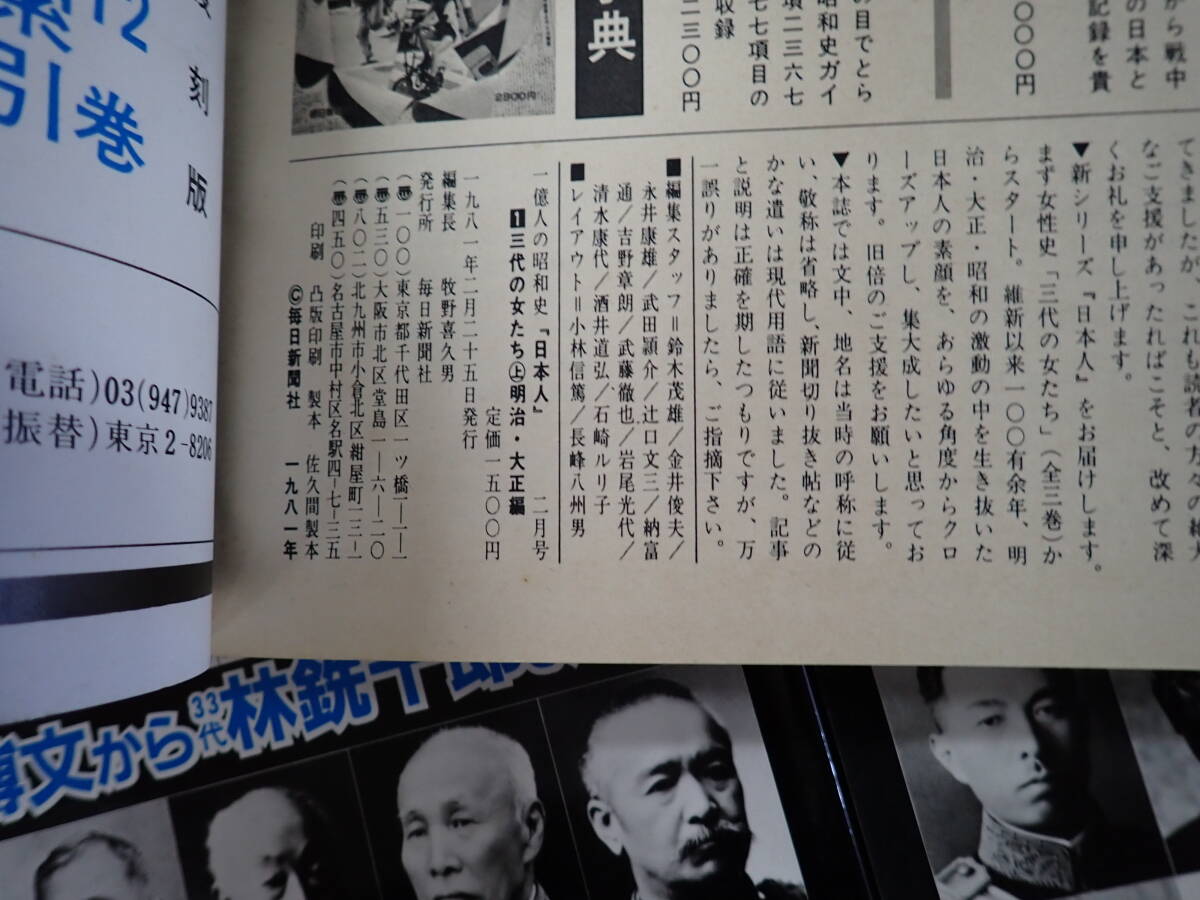 から戦中
の日本と
記録を貴
〇〇〇円
の目でとら
昭和史ガイ
項二三六七
七七項目の
収録
二三〇〇円
典
2300円
てきましたが、これも読者の方々の絶大
なご支援があったればこそと、改めて深
くお礼を申し上げます。
▼新シリーズ『日本人』をお届けします。
まず女性史「三代の女たち」(全三巻)か
らスタート。維新以来一〇〇有余年、明
治・大正・昭和の激動の中を生き抜いた
日本人の素顔を、あらゆる角度からクロ
ーズアップし、集大成したいと思ってお
ります。旧倍のご支援をお願いします。
▼本誌では文中、地名は当時の呼称に従
い、敬称は省略し、新聞切り抜き帖などの
かな遣いは現代用語に従いました。記事
と説明は正確を期したつもりですが、万
一誤りがありましたら、ご指摘下さい。
■編集スタッフ＝鈴木茂雄/金井俊夫/
永井康雄/武田頴介/辻口文三/納富
通/吉野章朗/武藤徹也/岩尾光代/
清水康代/酒井道弘/石崎ルリ子
■レイアウト＝小林信篤/長峰八州男
一億人の昭和史『日本人』 二月号
1三代の女たち㊤明治・大正編
定価一五〇〇円
一九八一年二月二十五日発行
編集長 牧野喜久男
発行所 毎日新聞社
(〒一〇〇)東京都千代田区一ツ橋一-一-一
(〒五三〇)大阪市北区堂島一-六-二〇
(〒八〇二)北九州市小倉北区紺屋町一三-一
(〒四五〇)名古屋市中村区名駅四-七-三五
印刷 凸版印刷 製本 佐久間製本
©毎日新聞社 一九八一年
刻版
12
索引巻
電話)03(947)9387
振替)東京2-8206
博文から33代林銑十郎